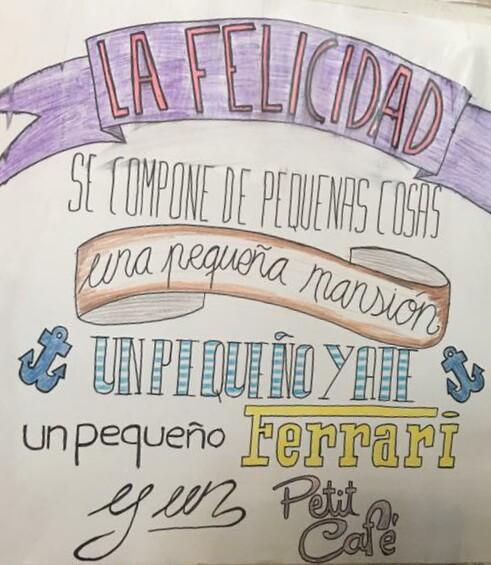 LA FELICIDAD
SE COMPONE DE PEQUEÑAS COSAS
una pequeña mansión
UN PEQUEÑO YATE
un pequeño Ferrari
y un Petit
Café